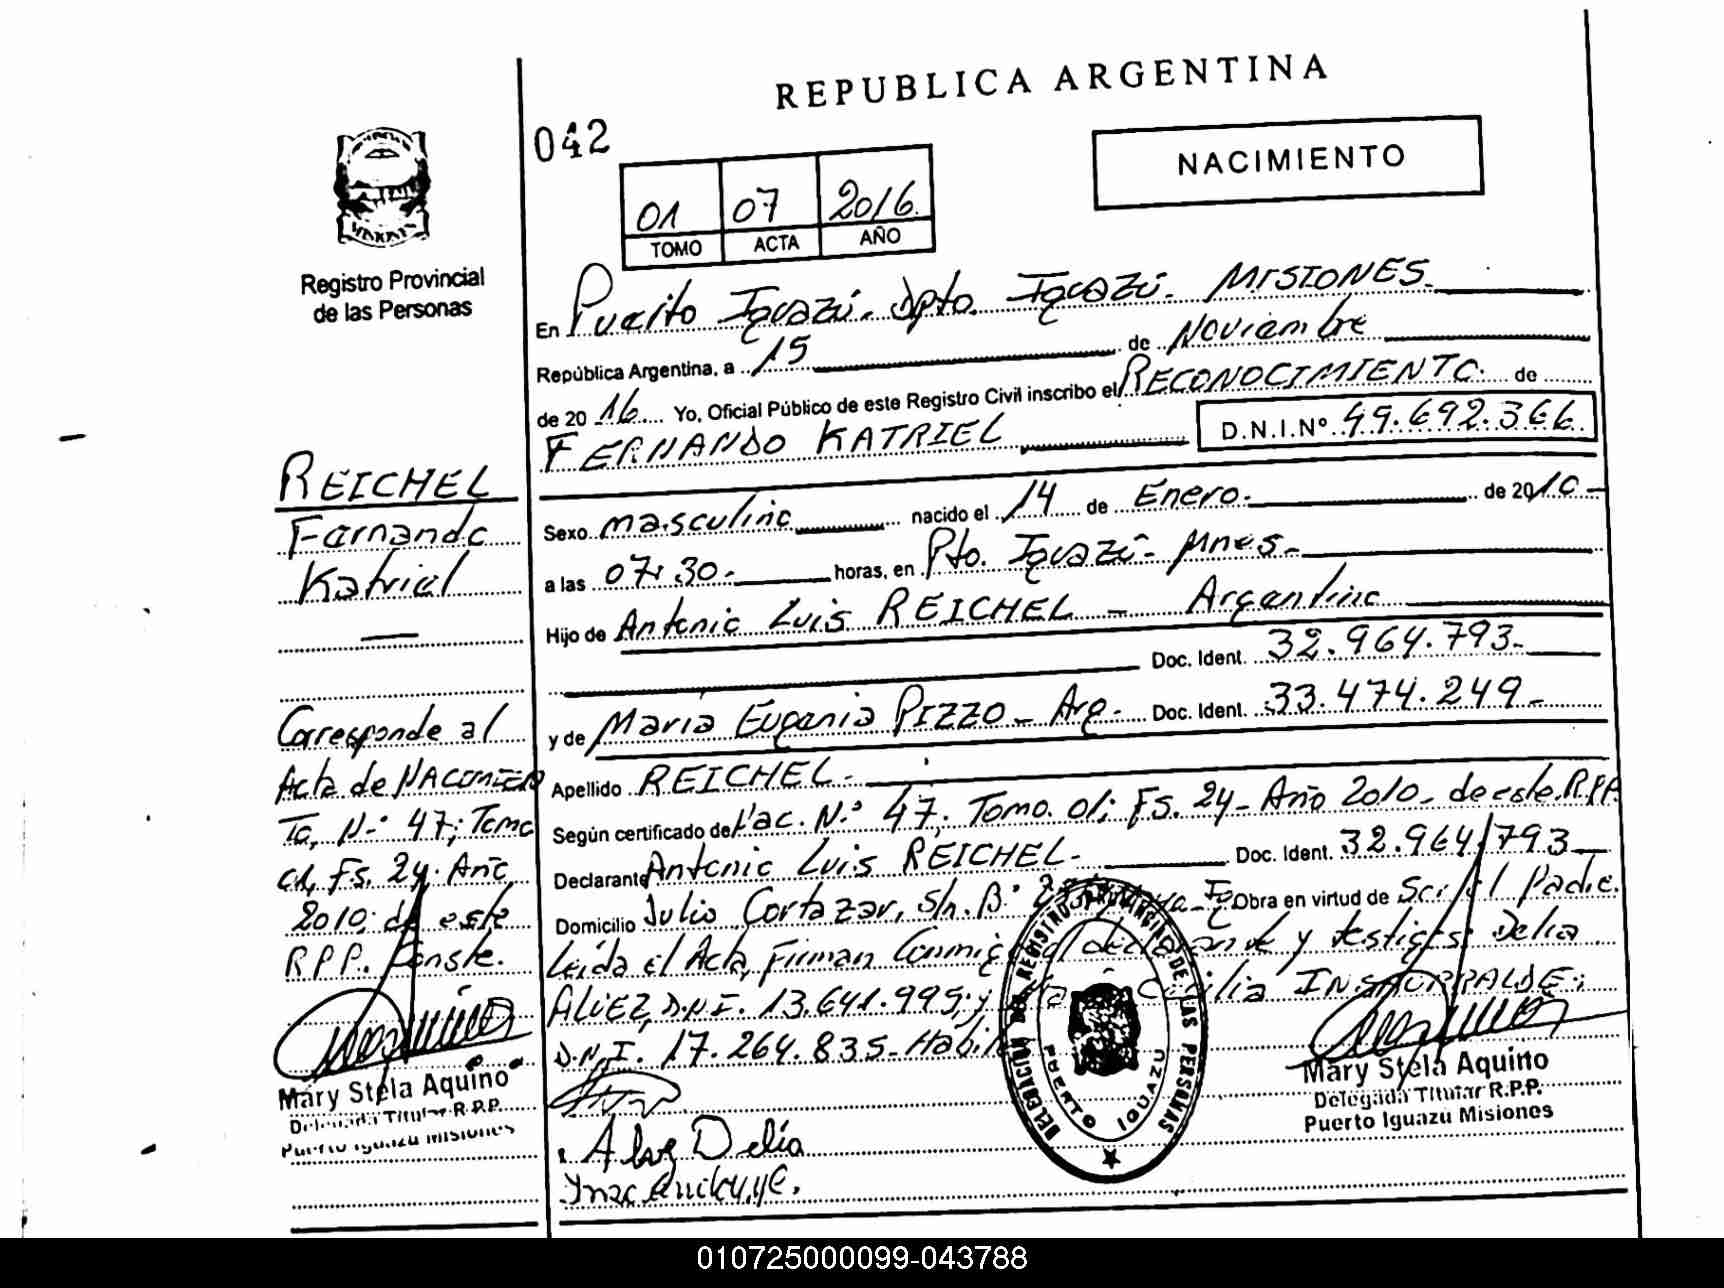 REPUBLICA ARGENTINA
042
NACIMIENTO
01 07 2016
TOMO ACTA AÑO
Registro Provincial
de las Personas
En Puerto Iguazú. Dpto. Iguazú. MISIONES.
República Argentina, a 15 de Noviembre
de 20 16 Yo, Oficial Público de este Registro Civil inscribo el RECONOCIMIENTO. de
FERNANDO KATRIEL D.N.I.Nº 49.692.366
Sexo masculino nacido el 14 de Enero. de 2010
a las 07:30- horas, en Pto. Iguazú- Mnes-
Hijo de Antonio Luis REICHEL - Argentino
Doc. Ident. 32.964.793-
y de María Eugenia PIZZO - Arg. Doc. Ident. 33.474.249-
Apellido REICHEL-
Según certificado de Nac. N.º 47. Tomo. 01; Fs. 24- Año 2010- de este R.P.P.
Declarante Antonio Luis REICHEL- Doc. Ident. 32.964.793
Domicilio Julio Cortazar, S/n. Bº Obra en virtud de Ser el Padre.
Leída el Acta, Firman Conmigo el declarante y testigos: Delia
ALVEZ, D.N.I. 13.641.995; y INSAURRALDE;
D.N.I. 17.264.835-
Alvez Delia
REICHEL
Fernando
Katriel
Corresponde al
Acta de NACIMIEN
To, N-º 47; Tomo
01, Fs. 24. Año
2010; de este
R.P.P. Conste.
Mary Stela Aquino
Delegada Titular R.P.P.
Puerto Iguazú Misiones
DELEGACION DEL REGISTRO PROVINCIAL DE LAS PERSONAS
PUERTO IGUAZU
Mary Stela Aquino
Delegada Titular R.P.P.
Puerto Iguazú Misiones
010725000099-043788